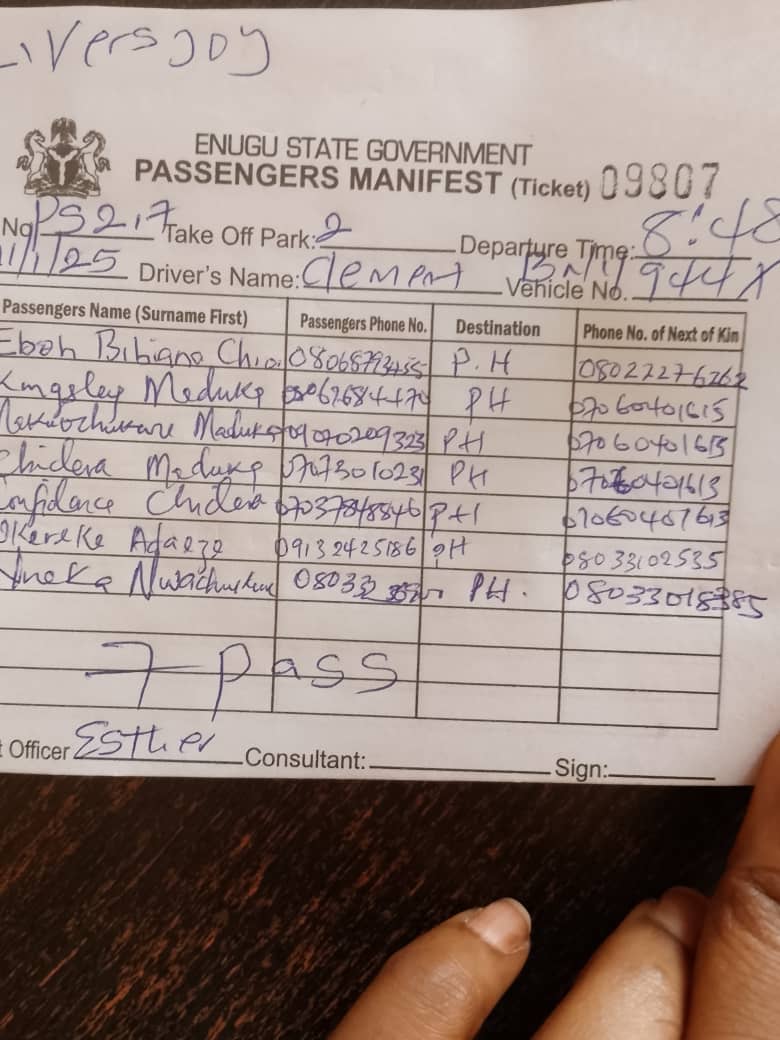 Liversjoy
ENUGU STATE GOVERNMENT
PASSENGERS MANIFEST (Ticket) 09807
No PS217 Take Off Park: 2 Departure Time: 8:48
1/1/25 Driver's Name: Clement Vehicle No. 944X
Passengers Name (Surname First) Passengers Phone No. Destination Phone No. of Next of Kin
Eboh P.H 08022276262
Kingsley Maduka PH 07060401615
Maduka 09070209323 PH 07060401613
Chidera Maduka 07073010231 PH
Confidence Chidera 07037848846 PH
Okereke Adaeze 09132425186 PH 08033102535
Nneka Nwachukwu PH. 08033018385
7 Pass
Officer Esther Consultant: Sign: